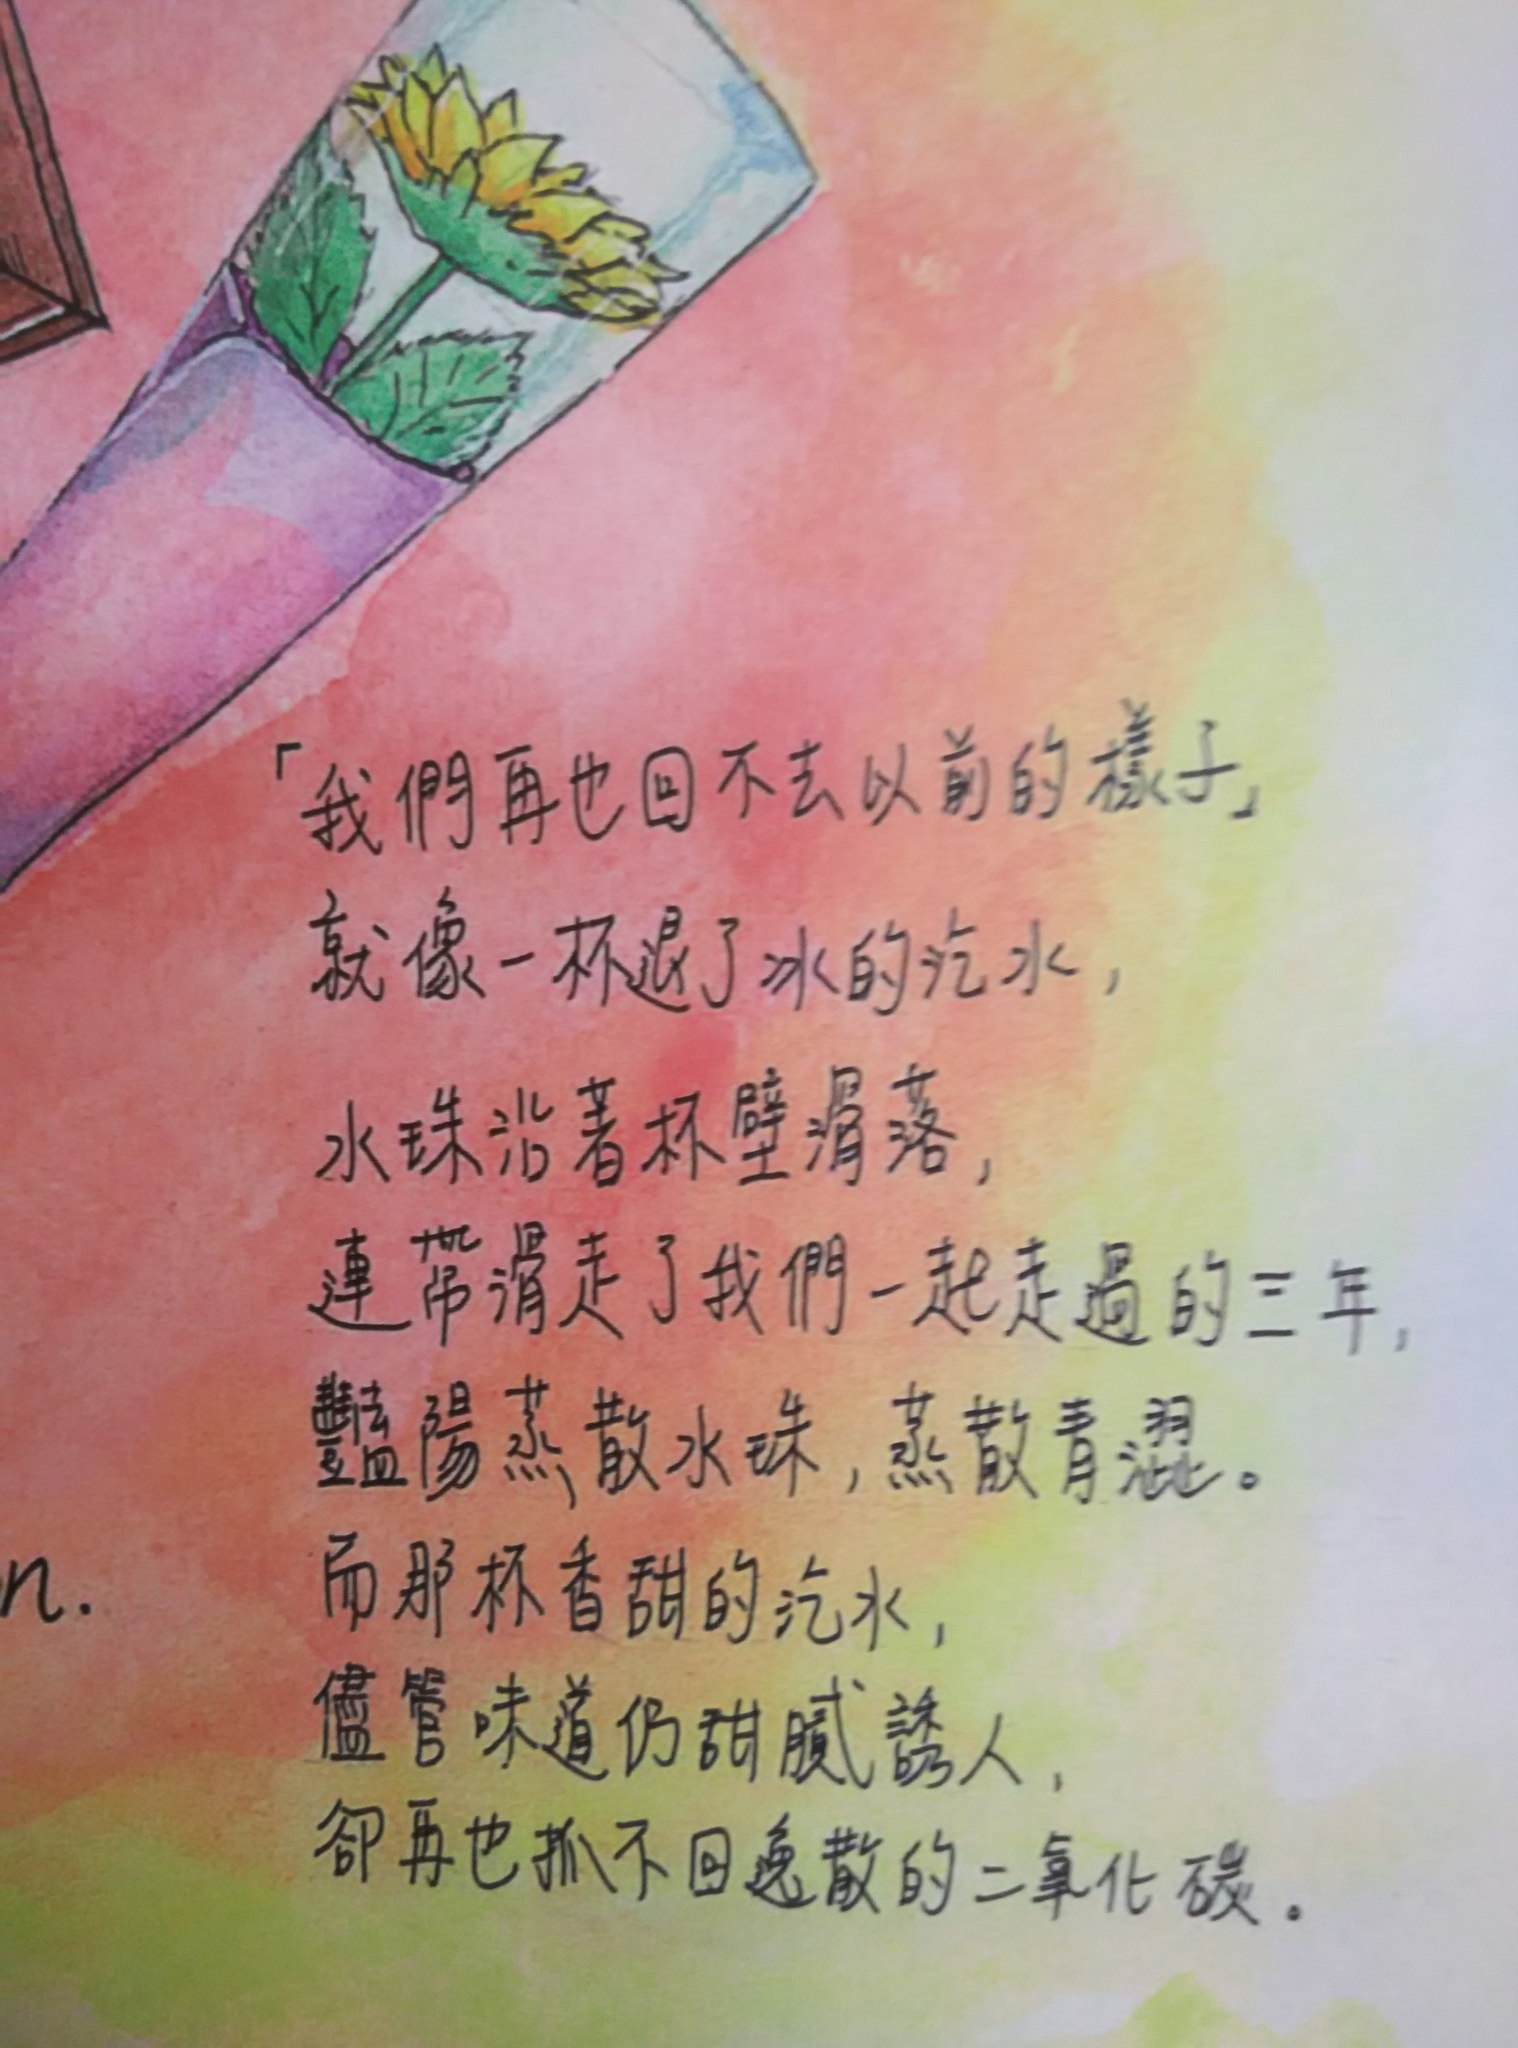 「我們再也回不去以前的樣子」
就像一杯退了冰的汽水，
水珠沿著杯壁滑落，
連帶滑走了我們一起走過的三年，
豔陽蒸散水珠，蒸散青澀。
n.
而那杯香甜的汽水，
儘管味道仍甜膩誘人，
卻再也抓不回逸散的二氧化碳。